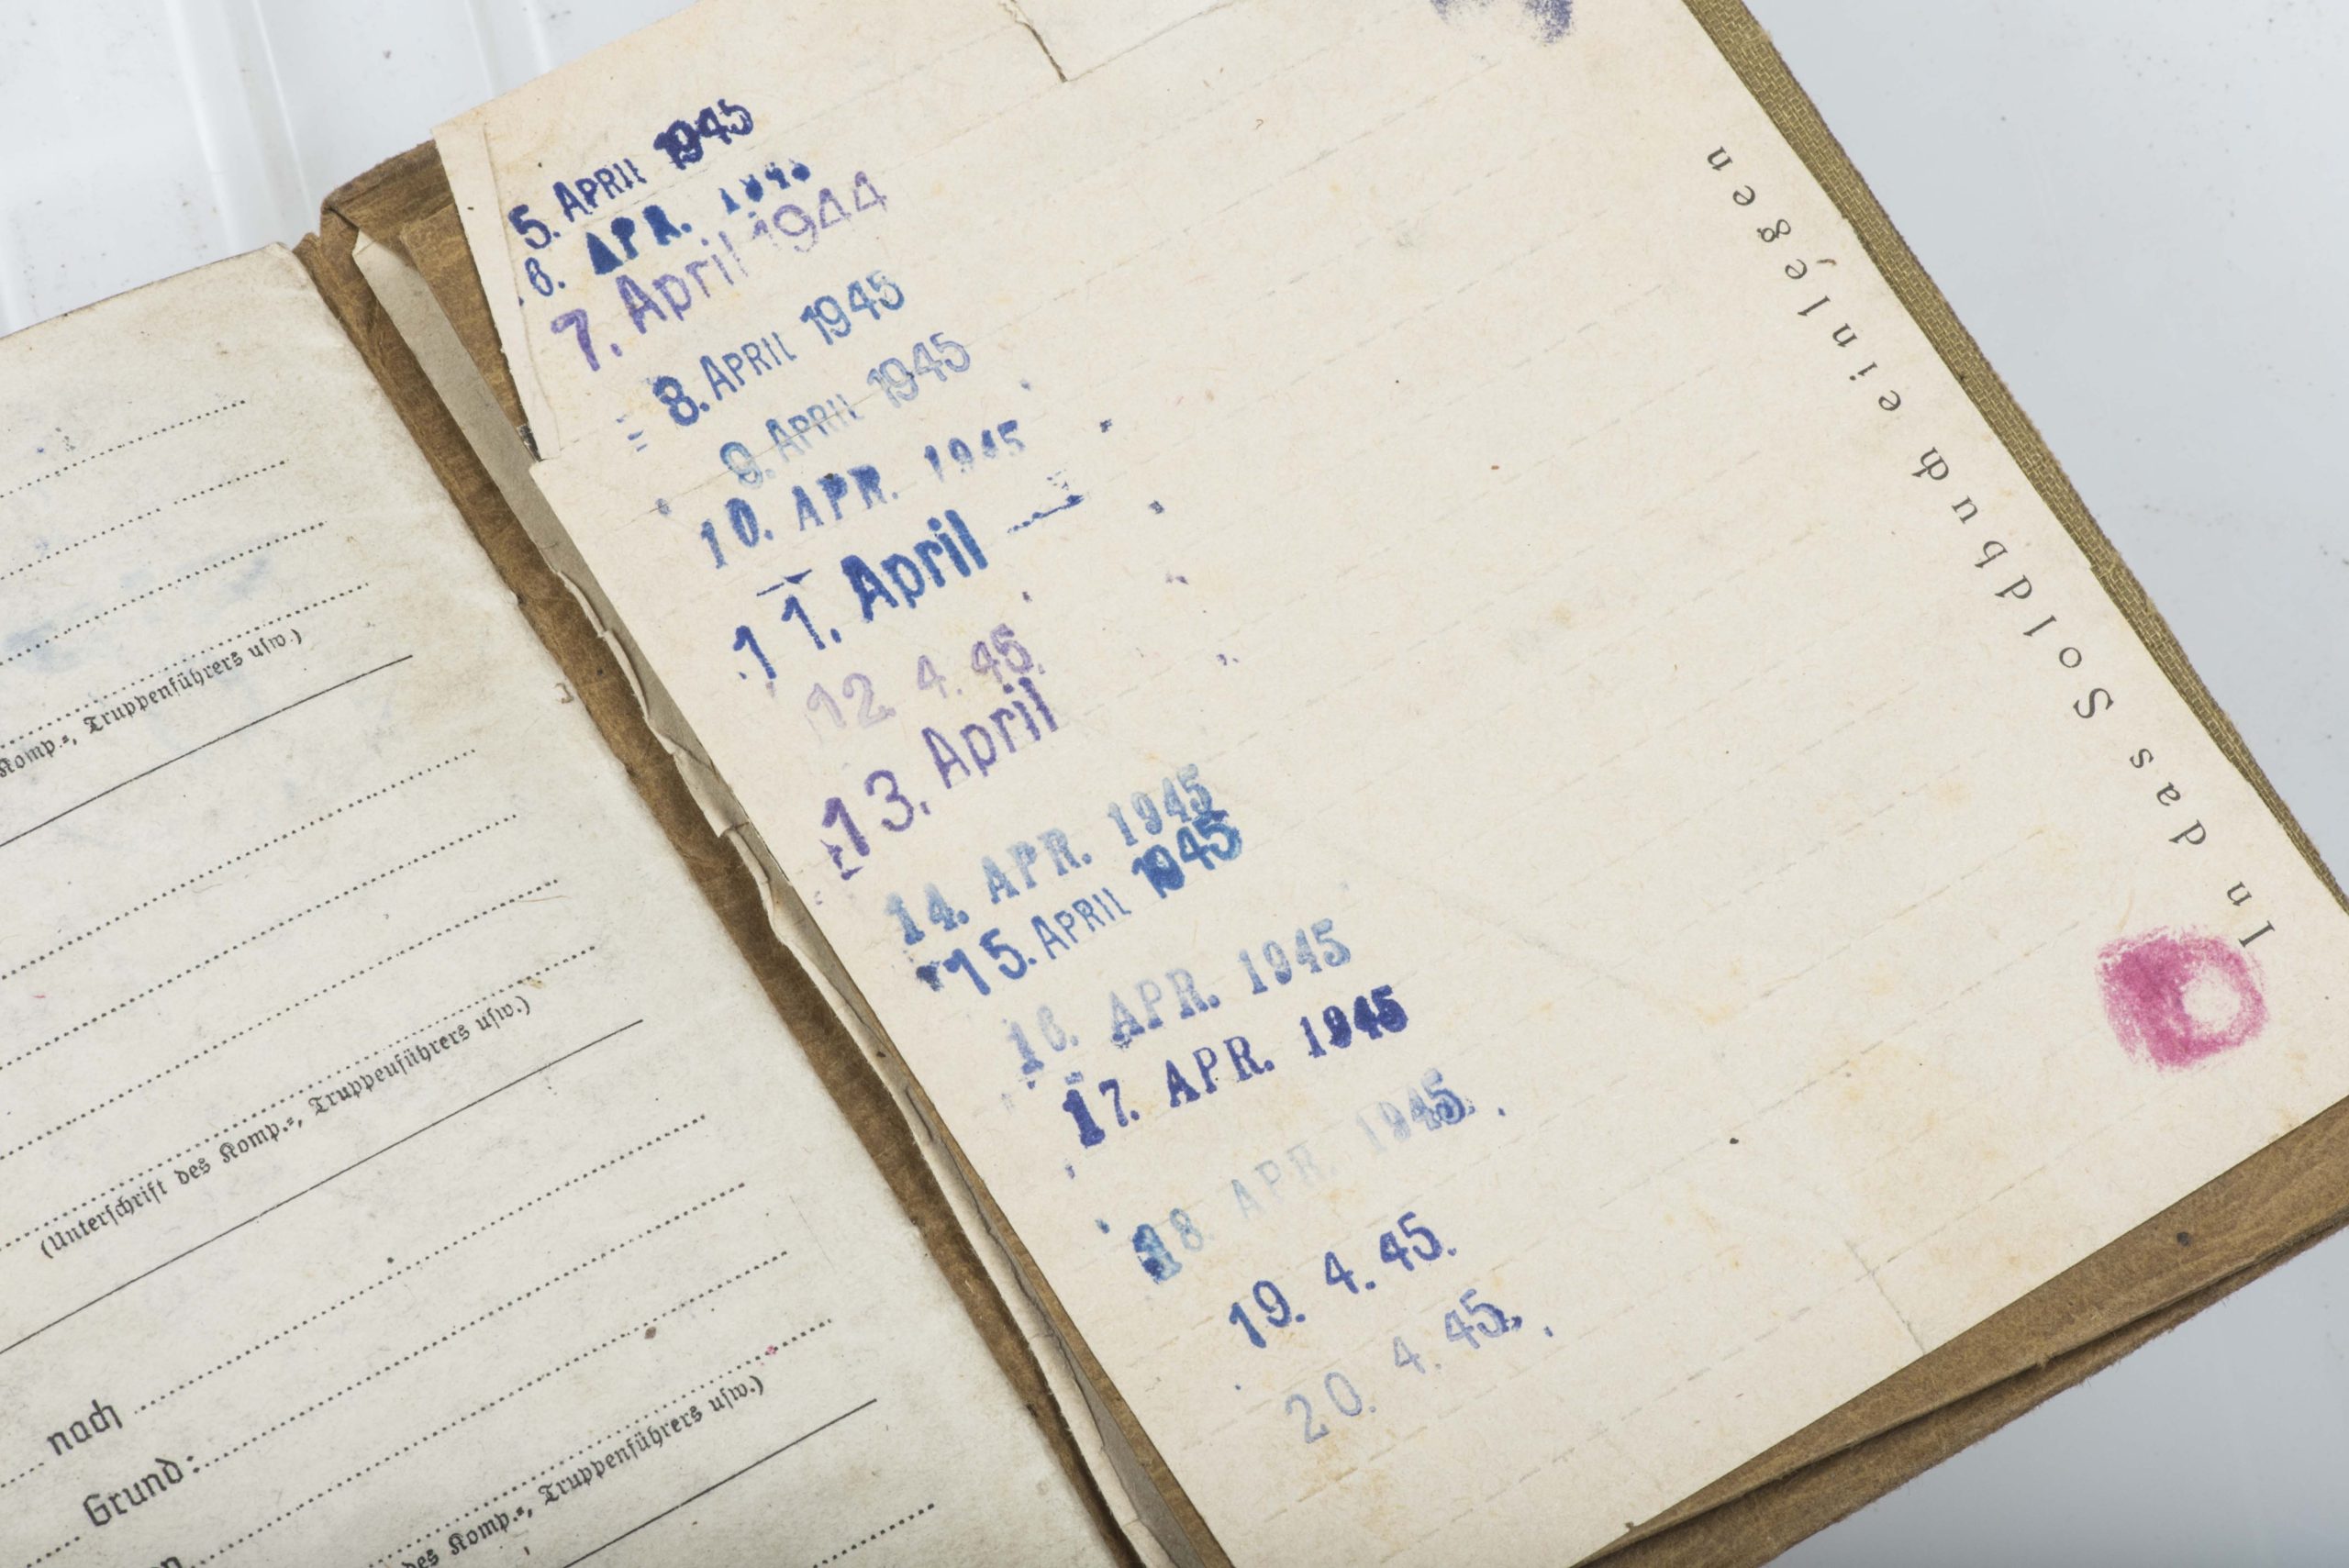 Komp.=, Truppenführers usw.)
(Unterschrift des Komp.=, Truppenführers usw.)
nach
Grund:
des Komp.=, Truppenführers usw.)
5. APRIL 1945
6. APR.
7. April 1944
8. APRIL 1945
9. APRIL 1945
10. APR. 1945
11. April
12. 4. 45.
13. April
14. APR. 1945
15. APRIL 1945
16. APR. 1945
17. APR. 1945
18. APR. 1945
19. 4. 45.
20. 4. 45.
In das Soldbuch einlegen